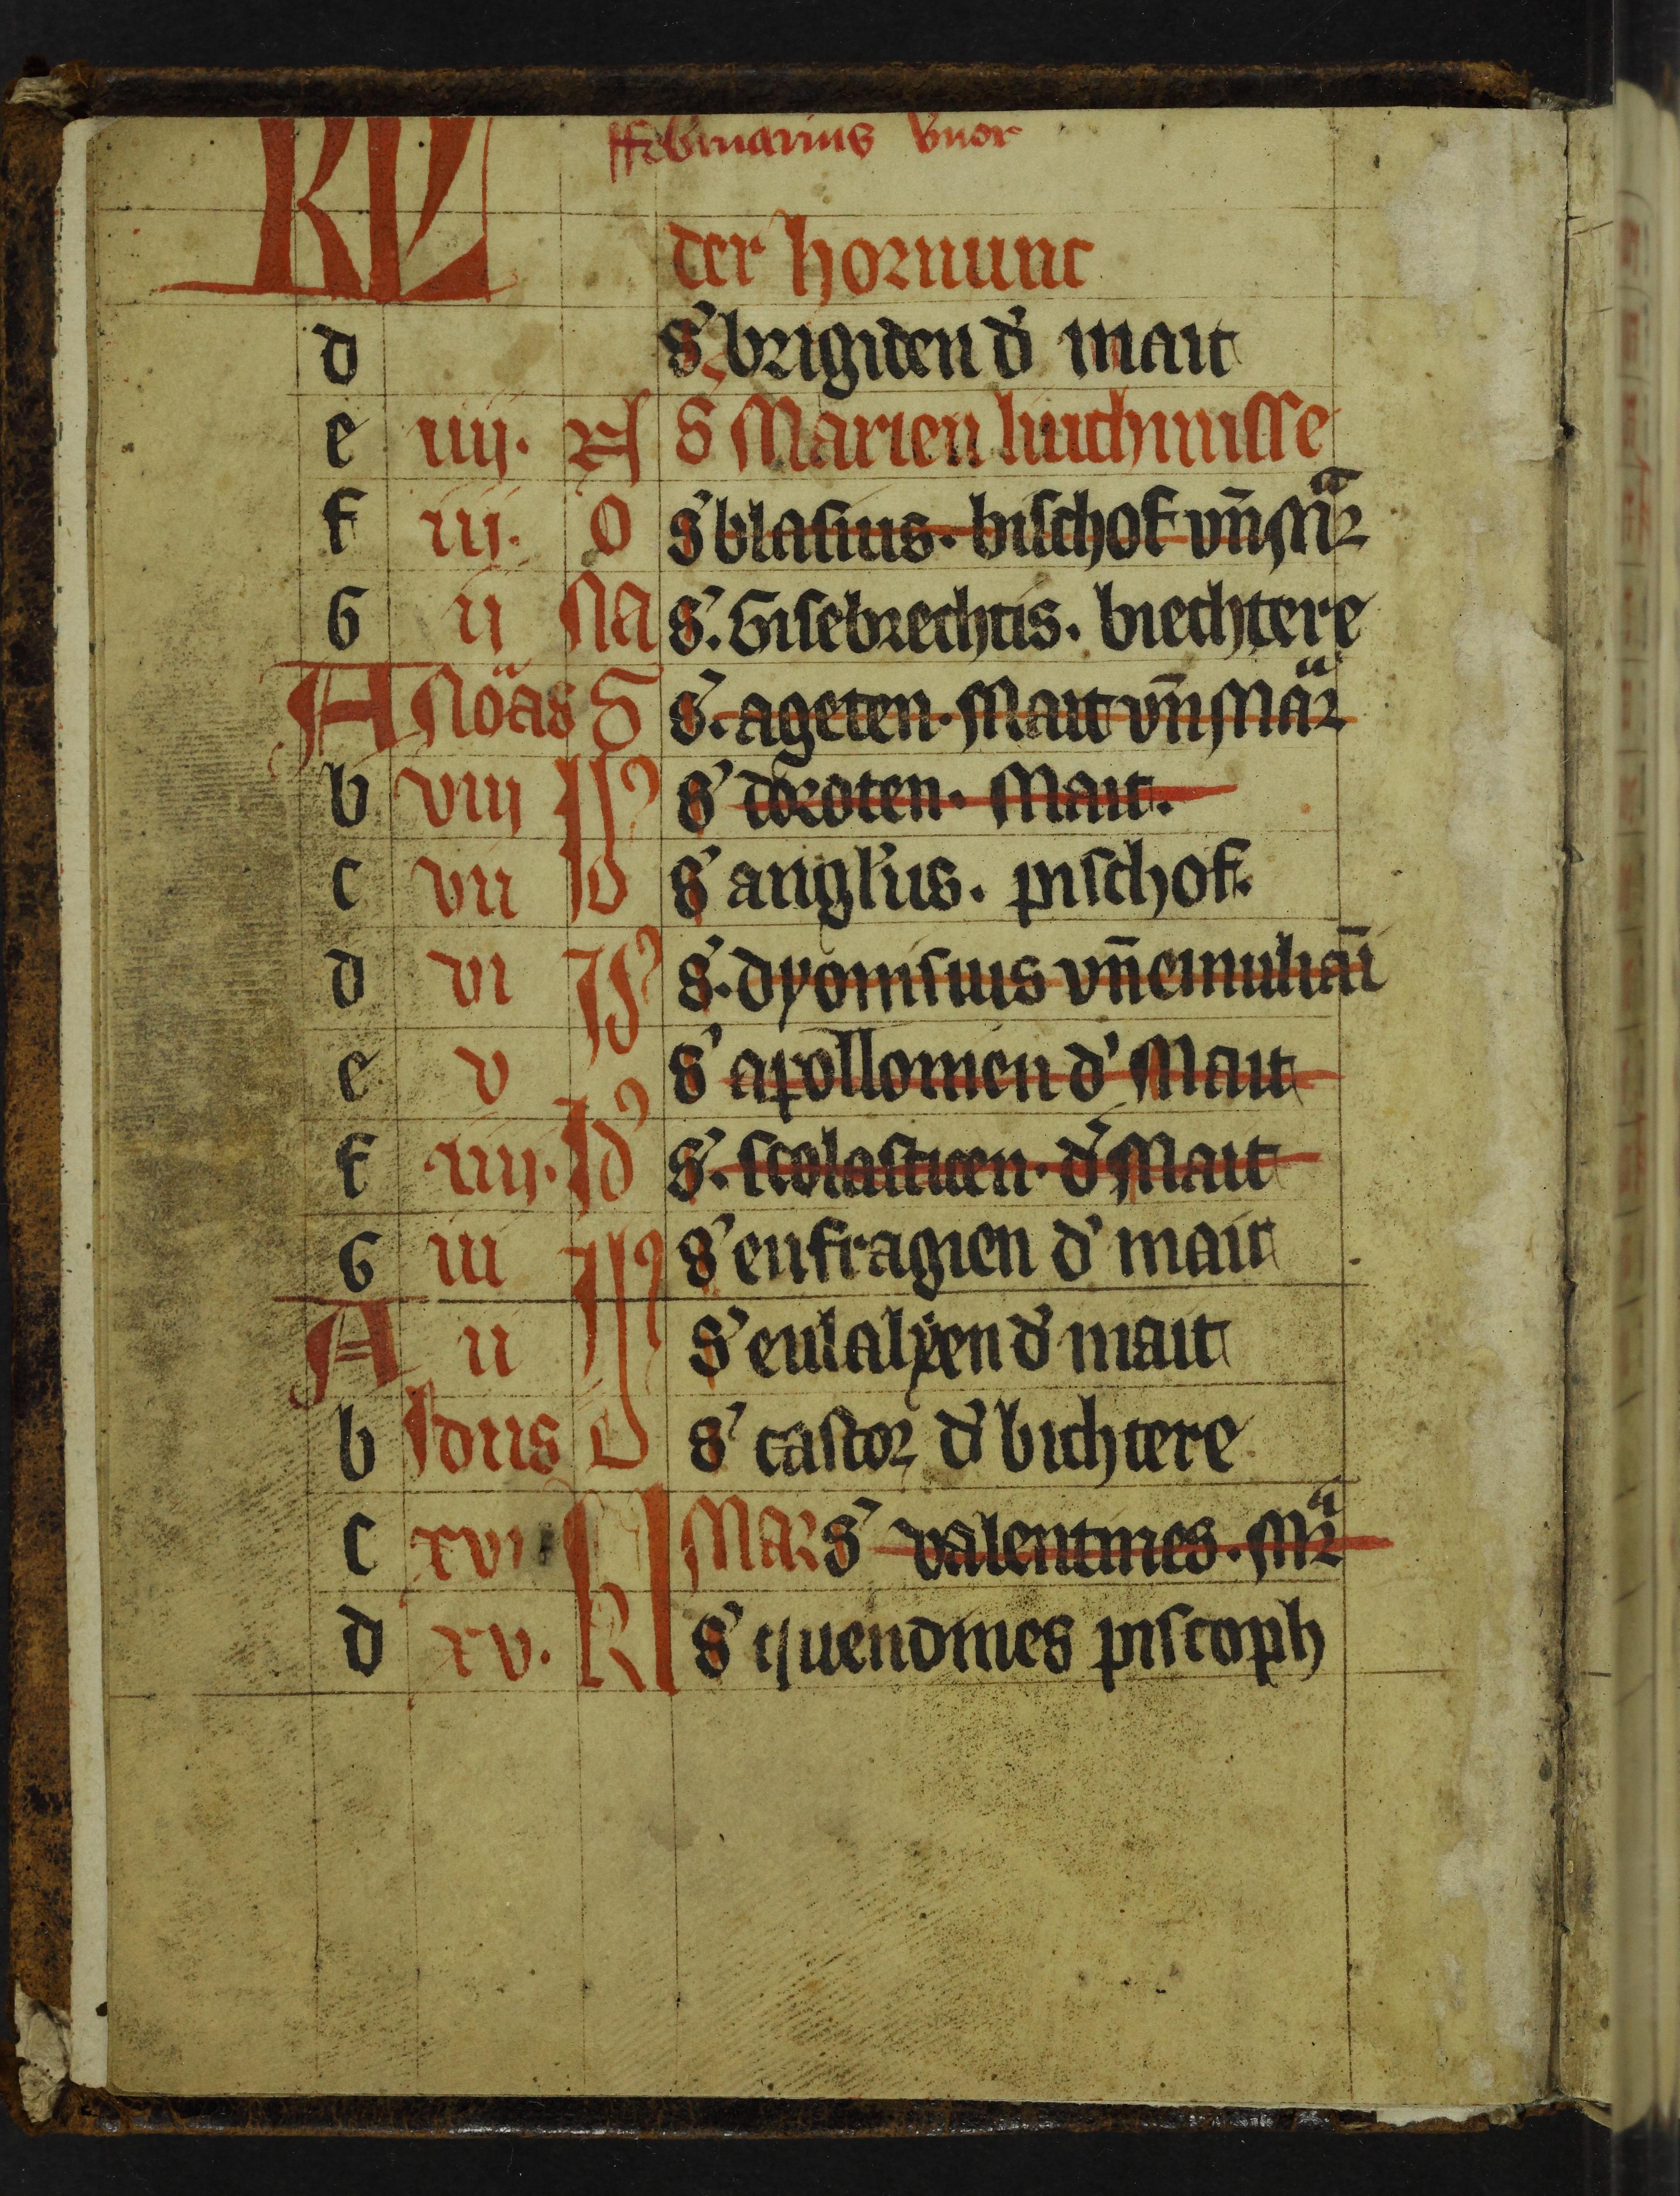 KL ffebruarius
der hornunc
d s' brigiden d' mait
e iiij. N S Marien liichmisse
f iij. o s' blasius. bischof vn̄ Mr̄
G ij Na s'. Gisebrechtis. biechtere
A Noas S s'. ageten. Mait vn̄ Mar
b viij s' doroten. Mait.
c vii s' anglius. pischof.
d vi s'. dyonisius vn̄ emiliāi
e v s' apollonien d' Mait
f iiij. Id s'. scolasticen. d' Mait
G iii s' eufragien d' mait
A ii s' eulalẏen d' mait
b Idus s' castor d' bichtere
c xvi kl MAR s' valentines. Mr̄
d xv. kl s' piscoph